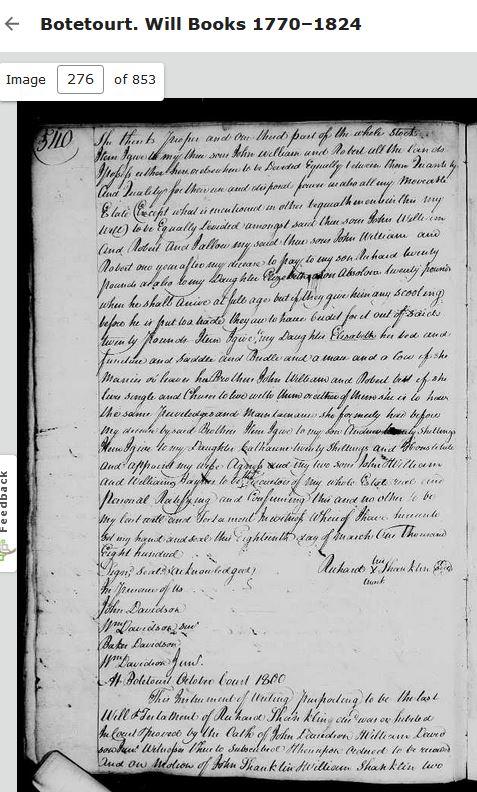 Botetourt. Will Books 1770–1824
Image 276 of 853
Feedback
540
and one third part of the whole Stock
Item I give to my three sons John William and Robert all the Lands
I possess either here or elsewhere to be Devided Equally between them Quantity
and Quality for their use and disposal also all my Moveable
Estate (Except what is mentioned in other bequathments in this my
will) to be Equally Devided amongst said three sons John William
and Robert And I allow my said three sons John William and
Robert one year after my decease to pay to my son Richard twenty
pounds as also to my Daughter Elizabeth son Absolom twenty pounds
when he shall arive at full age but if they give him any scooling
before he is put to a trade they are to have Credit for it out of said
twenty Pounds Item I give my Daughter Elizabeth her bed and
furniture and Saddle and Bridle and a mare and a Cow if she
Marries or leaves her Brothers John William and Robert but if she
lives single and Chuses to live with them or either of them she is to have
the same Priviledges and Maintainance she formerly had before
my decease by said Brothers Item I give to my son Andrew twenty Shillings
Item I give to my Daughter Catharine twenty Shillings and I Constitute
and appoint my wife Agness and my two sons John & William
and William to be Executors of my whole Estate real and
Personal Ratifying and Confirming this and no other to be
my last will and Testament In witness Whereof I have hereunto
Set my hand and seal this Eighteenth day of March One Thousand
Eight hundred
Signd. Seald & acknowledged
Richard his X mark Shanklin Seal
In Presence of Us
John Davidson
Wm. Davidson Senr.
Baker Davidson
Wm. Davidson Junr.
At Botetourt October Court 1800
This Instrument of Writing Purporting to be the last
Will & Testament of Richard Shanklin decd. was exhibited
in Court & proved by the Oath of John Davidson William David
son Junr. Witnesses thereto Subscribed & thereupon ordered to be recorded
And on Motion of John Shanklin William Shanklin two